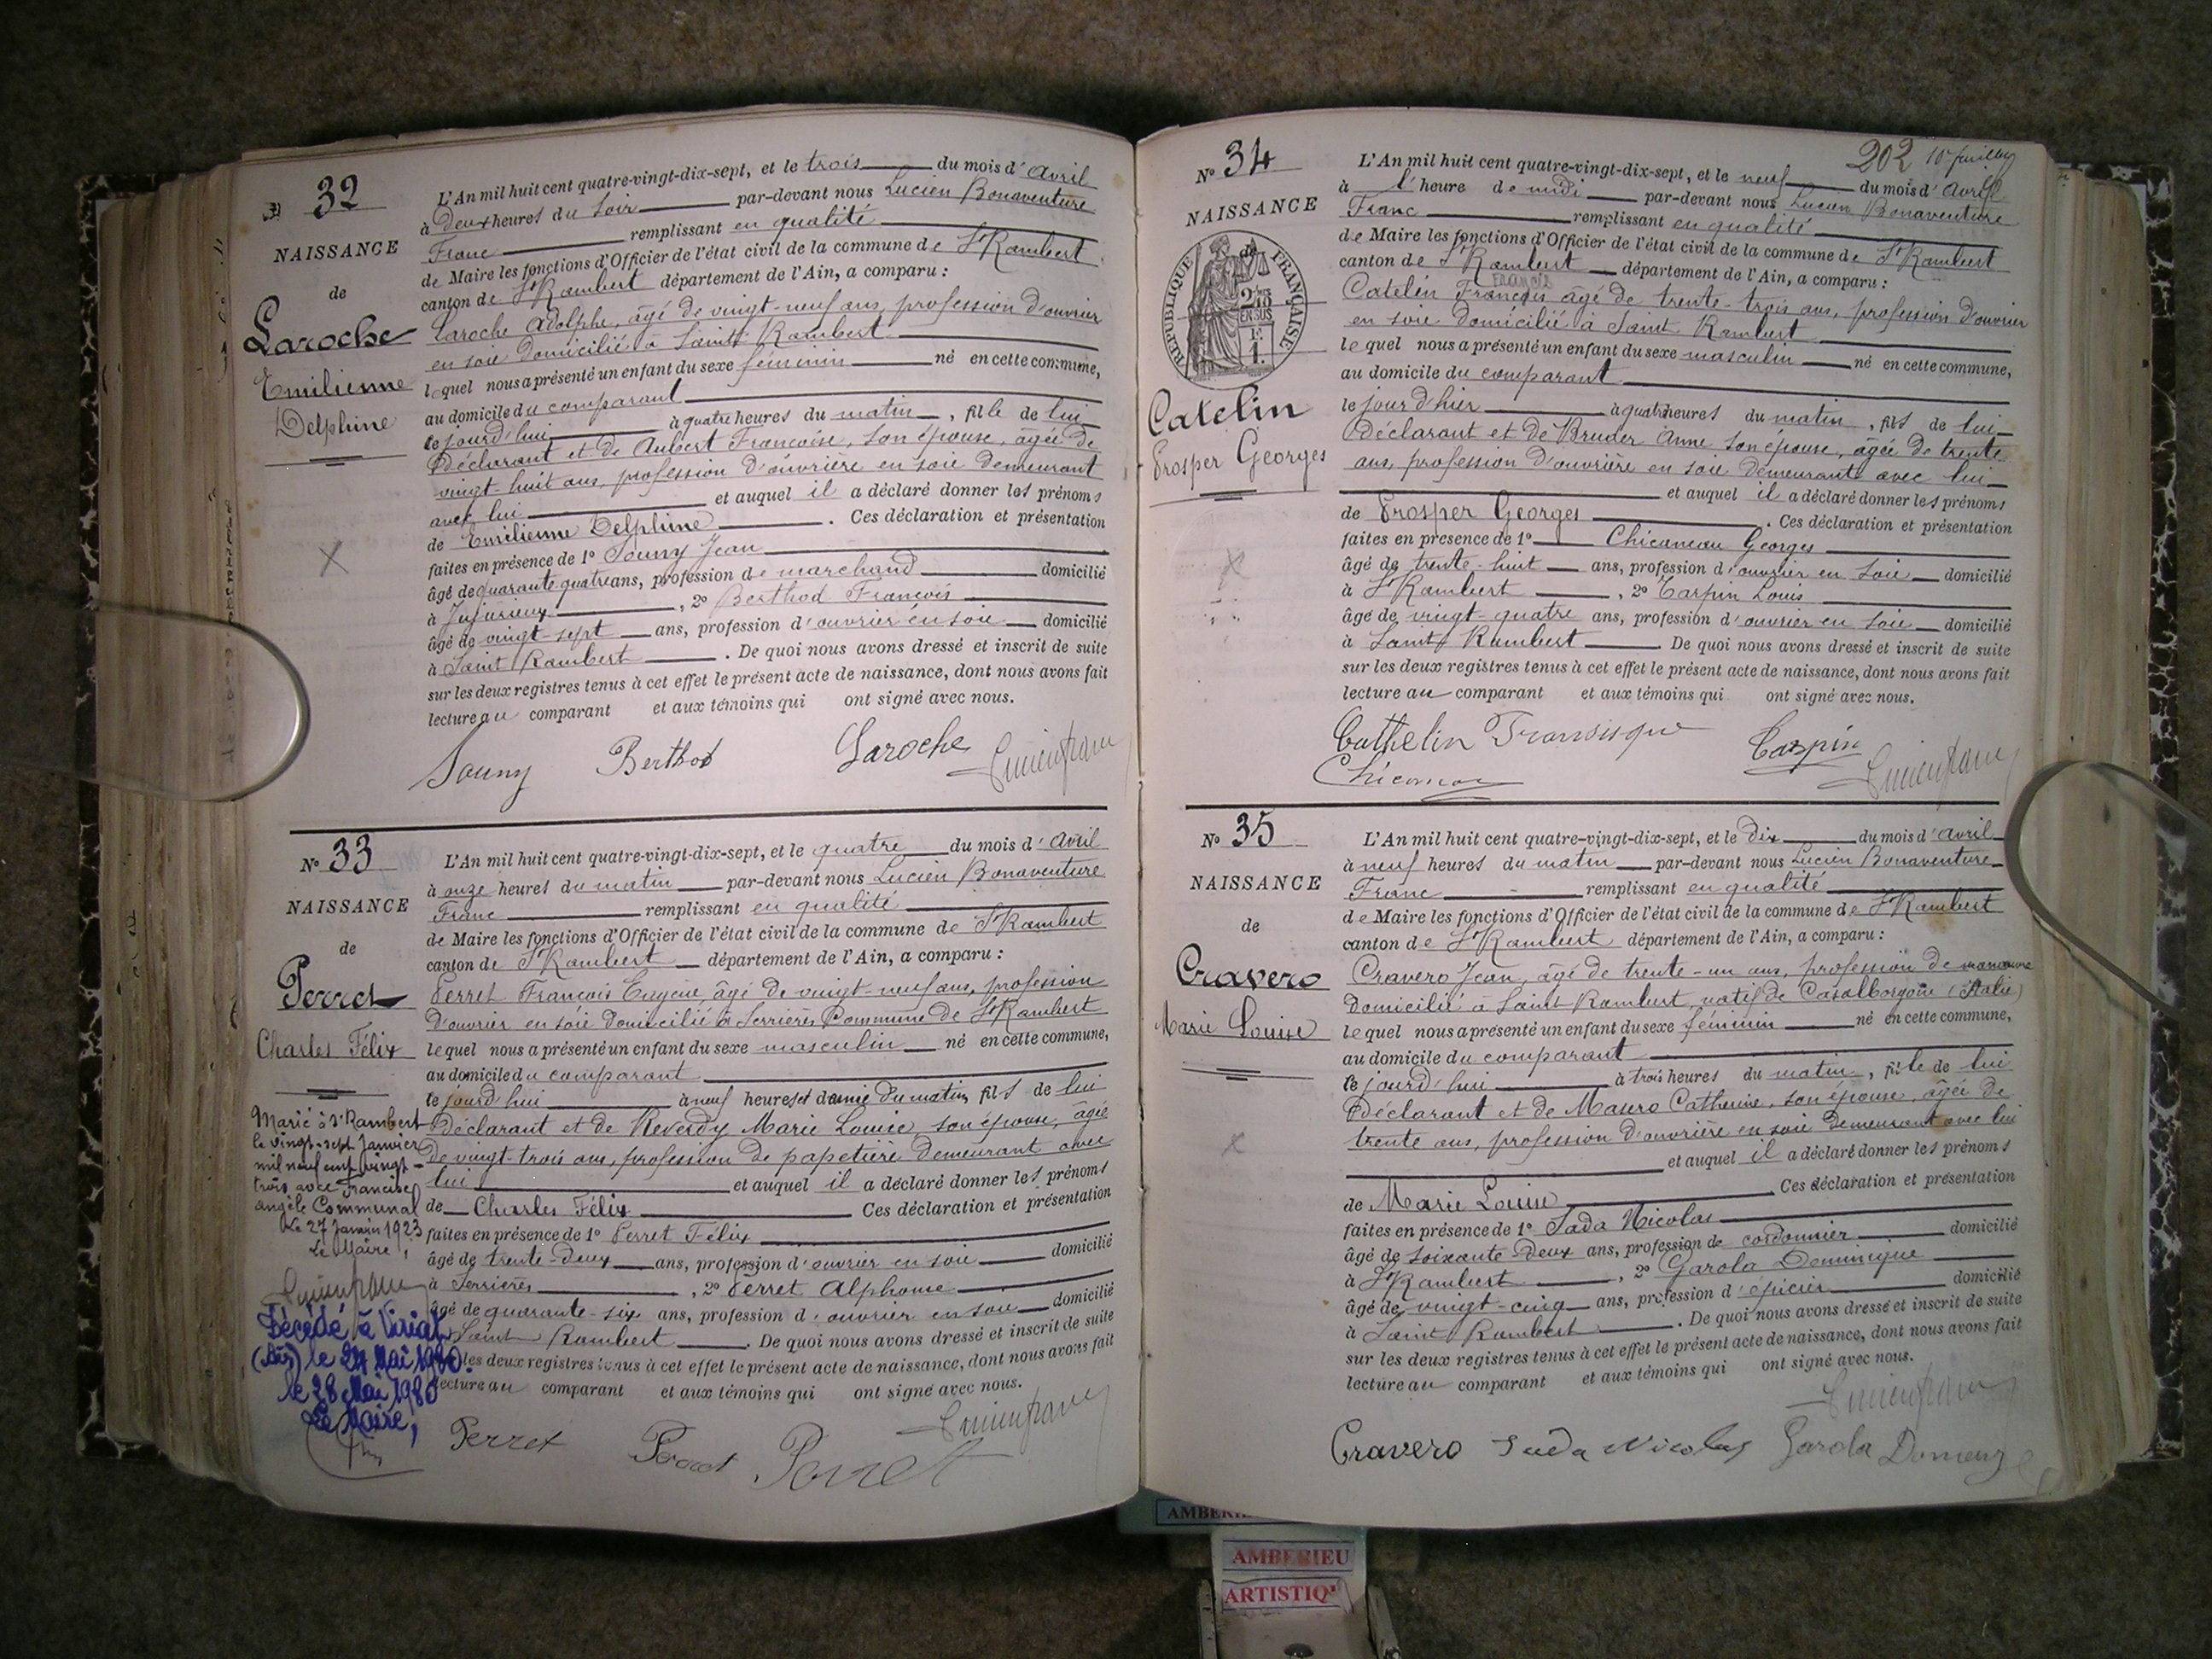 32
NAISSANCE
de
Laroche
Emilienne
Delphine
L'An mil huit cent quatre-vingt-dix-sept, et le trois du mois d'Avril
à deux heures du soir par-devant nous Lucien Bonaventure
Franc remplissant en qualité
de Maire les fonctions d'Officier de l'état civil de la commune de St Rambert
canton de St Rambert département de l'Ain, a comparu :
Laroche Adolphe, âgé de vingt-neuf ans, profession d'ouvrier
en soie domicilié à Saint Rambert
lequel nous a présenté un enfant du sexe féminin né en cette commune,
au domicile du comparant
le jourd'hui à quatre heures du matin, fille de lui
Déclarant et de Aubert Françoise, son épouse, âgée de
vingt-huit ans, profession d'ouvrière en soie demeurant
avec lui et auquel il a déclaré donner les prénoms
de Emilienne Delphine. Ces déclaration et présentation
faites en présence de 1° Souny Jean
âgé de quarante quatre ans, profession de marchand domicilié
à Jujurieux, 2° Berthod François
âgé de vingt-sept ans, profession d'ouvrier en soie domicilié
à Saint Rambert. De quoi nous avons dressé et inscrit de suite
sur les deux registres tenus à cet effet le présent acte de naissance, dont nous avons fait
lecture au comparant et aux témoins qui ont signé avec nous.
Souny Berthod Laroche Lucien franc
N° 33
NAISSANCE
de
Perret
Charles Félix
Marié à St Rambert
le vingt-sept Janvier
mil neuf cent vingt-
trois avec Francise
angèle Communal
Le 27 Janvier 1923
Le Maire,
Lucien franc
Décédé à Viriat
(Ain) le 24 Mai 1980.
le 28 Mai 1980
Le Maire,
L'An mil huit cent quatre-vingt-dix-sept, et le quatre du mois d'Avril
à onze heures du matin par-devant nous Lucien Bonaventure
Franc remplissant en qualité
de Maire les fonctions d'Officier de l'état civil de la commune de St Rambert
canton de St Rambert département de l'Ain, a comparu :
Perret François Eugène, âgé de vingt-neuf ans, profession
d'ouvrier en soie domicilié à Serrières Commune de St Rambert
lequel nous a présenté un enfant du sexe masculin né en cette commune,
au domicile du comparant
le jourd'hui à neuf heures et demie du matin, fils de lui
Déclarant et de Reverdy Marie Louise, son épouse, âgée
de vingt-trois ans, profession de papetière demeurant avec
lui et auquel il a déclaré donner les prénoms
de Charles Félix Ces déclaration et présentation
faites en présence de 1° Perret Félix
âgé de trente-deux ans, profession d'ouvrier en soie domicilié
à Serrières, 2° Perret Alphonse
âgé de quarante-six ans, profession d'ouvrier en soie domicilié
Saint Rambert. De quoi nous avons dressé et inscrit de suite
les deux registres tenus à cet effet le présent acte de naissance, dont nous avons fait
lecture au comparant et aux témoins qui ont signé avec nous.
Lucien franc
Perret Perret Perret
202
N° 34
NAISSANCE
de
RÉPUBLIQUE FRANÇAISE
Catelin
Prosper Georges
L'An mil huit cent quatre-vingt-dix-sept, et le neuf du mois d'Avril
à l'heure de midi par-devant nous Lucien Bonaventure
Franc remplissant en qualité
de Maire les fonctions d'Officier de l'état civil de la commune de St Rambert
canton de St Rambert département de l'Ain, a comparu :
Catelin François âgé de trente-trois ans, profession d'ouvrier
en soie domicilié à Saint Rambert
lequel nous a présenté un enfant du sexe masculin né en cette commune,
au domicile du comparant
le jour d'hier à quatre heures du matin, fils de lui
Déclarant et de Bruder Anne son épouse, âgée de trente
ans, profession d'ouvrière en soie demeurant avec lui
et auquel il a déclaré donner les prénoms
de Prosper Georges. Ces déclaration et présentation
faites en présence de 1° Chicaneau Georges
âgé de trente-huit ans, profession d'ouvrier en soie domicilié
à St Rambert, 2° Carpin Louis
âgé de vingt-quatre ans, profession d'ouvrier en soie domicilié
à Saint Rambert De quoi nous avons dressé et inscrit de suite
sur les deux registres tenus à cet effet le présent acte de naissance, dont nous avons fait
lecture au comparant et aux témoins qui ont signé avec nous.
Cathelin Francisque Carpin
Lucien franc
N° 35
NAISSANCE
de
Cravero
Marie Louise
L'An mil huit cent quatre-vingt-dix-sept, et le dix du mois d'Avril
à neuf heures du matin par-devant nous Lucien Bonaventure
Franc remplissant en qualité
de Maire les fonctions d'Officier de l'état civil de la commune de St Rambert
canton de St Rambert département de l'Ain, a comparu :
Cravero Jean, âgé de trente-un ans, profession de manœuvre
domicilié à Saint Rambert, natif de Casalborgone (Italie)
lequel nous a présenté un enfant du sexe féminin né en cette commune,
au domicile du comparant
le jourd'hui à trois heures du matin, fille de lui
Déclarant et de Masero Catherine, son épouse, âgée de
trente ans, profession d'ouvrière en soie demeurant avec lui
et auquel il a déclaré donner les prénoms
de Marie Louise Ces déclaration et présentation
faites en présence de 1° Sada Nicolas
âgé de soixante-deux ans, profession de cordonnier domicilié
à St Rambert, 2° Garola Dominique
âgé de vingt-cinq ans, profession d'épicier domicilié
à Saint Rambert. De quoi nous avons dressé et inscrit de suite
sur les deux registres tenus à cet effet le présent acte de naissance, dont nous avons fait
lecture au comparant et aux témoins qui ont signé avec nous.
Lucien franc
Cravero Sada Nicolas Garola
AMBERIEU
ARTISTIQ